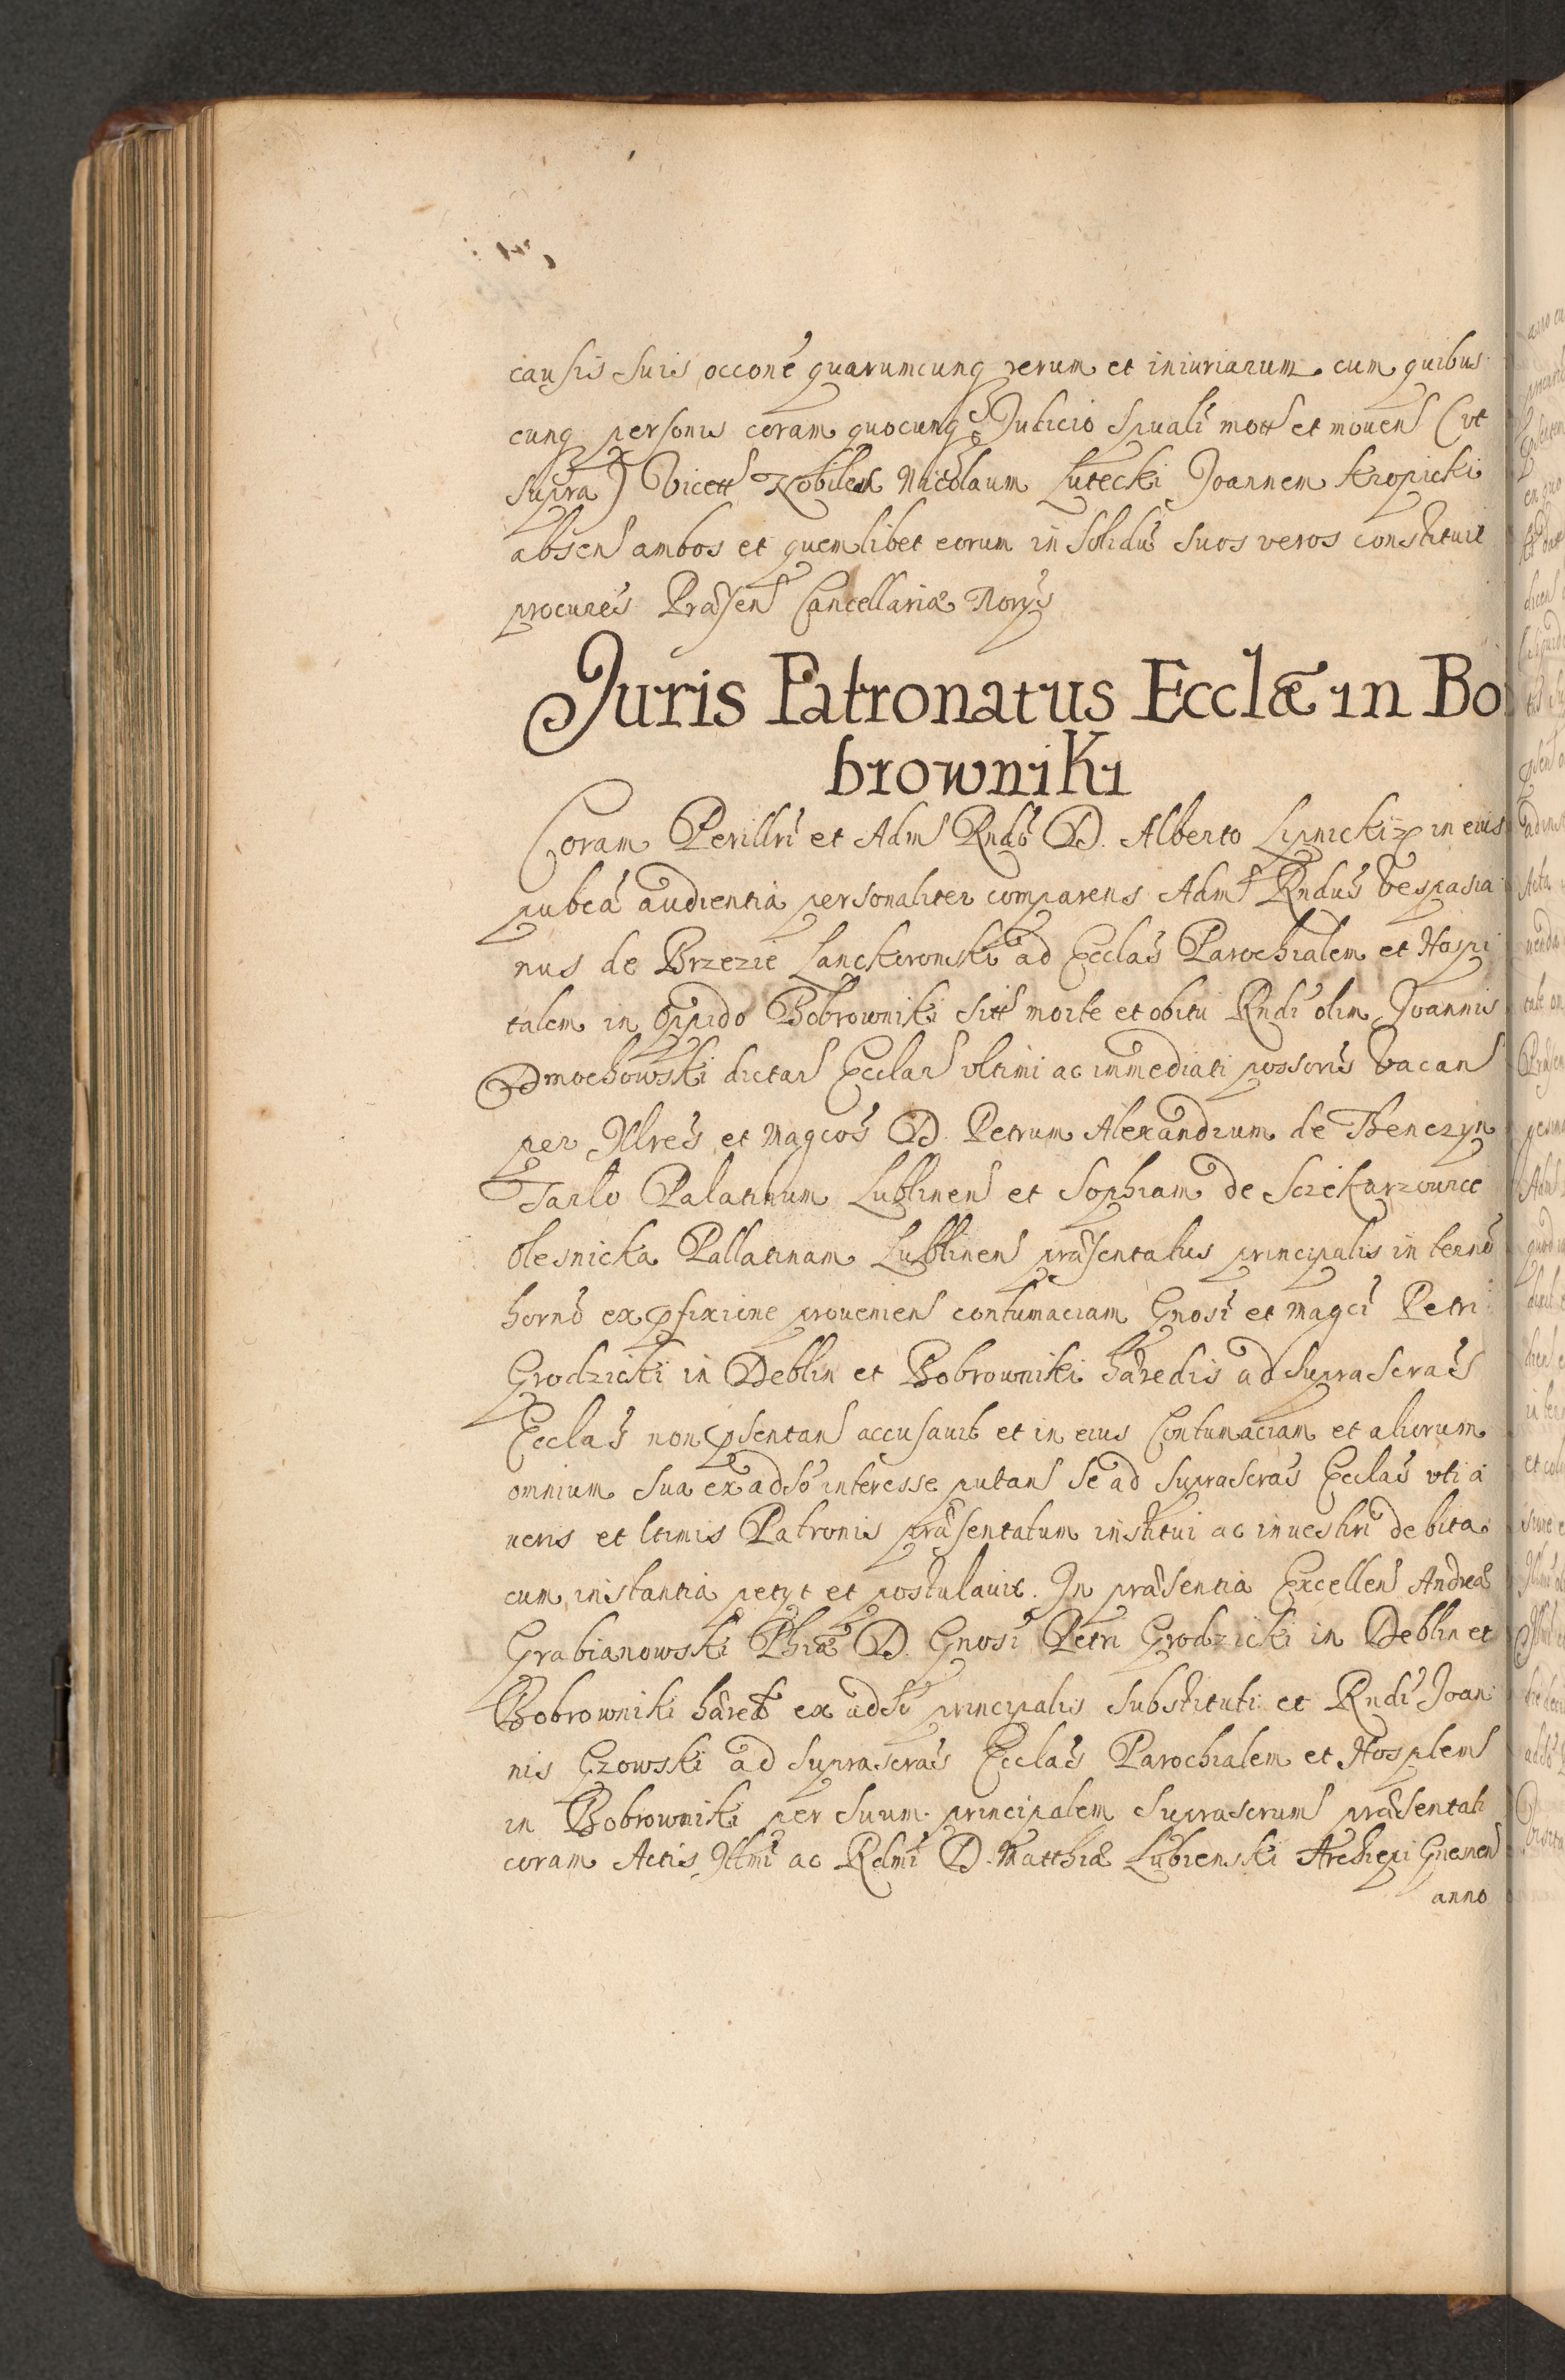 causis suis occone quarumcunq rerum et iniuriarum cum quibus
cunq personis coram quocunq Judicio spuali mott et mouen (ut
supra) Vicett Nobiles Nicolaum Lutecki Joannem Kropicki
absen ambos et quemlibet eorum in solidu suos veros constituit
procures Præsen Cancellariæ Norys
Juris Patronatus Ecclæ in Bo
browniki
Coram Perillri et Adm Rndo D. Alberto Lipnicki in eius
pubca audientia personaliter comparens Adm Rndus Vespasia
nus de Brzezie Lanckoronski ad Ecclas Parochialem et Hospi
talem in oppido Bobrowniki sitt morte et obitu Rndi olim Joannis
Dmochowski dictar Ecclar vltimi ac immediati possoris vacan
per Illres et Magcos D. Petrum Alexandrum de Thenczyn
Tarlo Palatinum Lublinen et Sophiam de Sciekarzowice
Olesnicka Pallatinam Lublinen præsentatus principalis in termo
horno ex pfixione prouenien contumaciam Gnosi et Magci Petri
Grodzicki in Deblin et Bobrowniki hæredis ad suprascras
Ecclas non psentan accusauit et in eius Contumaciam et aliorum
omnium sua ex adso interesse putan se ad suprascras Ecclas vti a
veris et ltimis Patronis præsentatum institui ac inuestiri debita
cum instantia petyt et postulauit. In præsentia Excellen Andreæ
Grabianowski Phiæ D. Gnosi Petri Grodzicki in Deblin et
Bobrowniki hæred ex adso principalis substituti et Rndi Joan
nis Gzowski ad suprascras Ecclas Parochialem et Hosplem
in Bobrowniki per suum principalem suprascrum præsentati
coram Actis Illmi ac Rdmi D. Matthiæ Lubienski Archiepi Gnesnen
anno